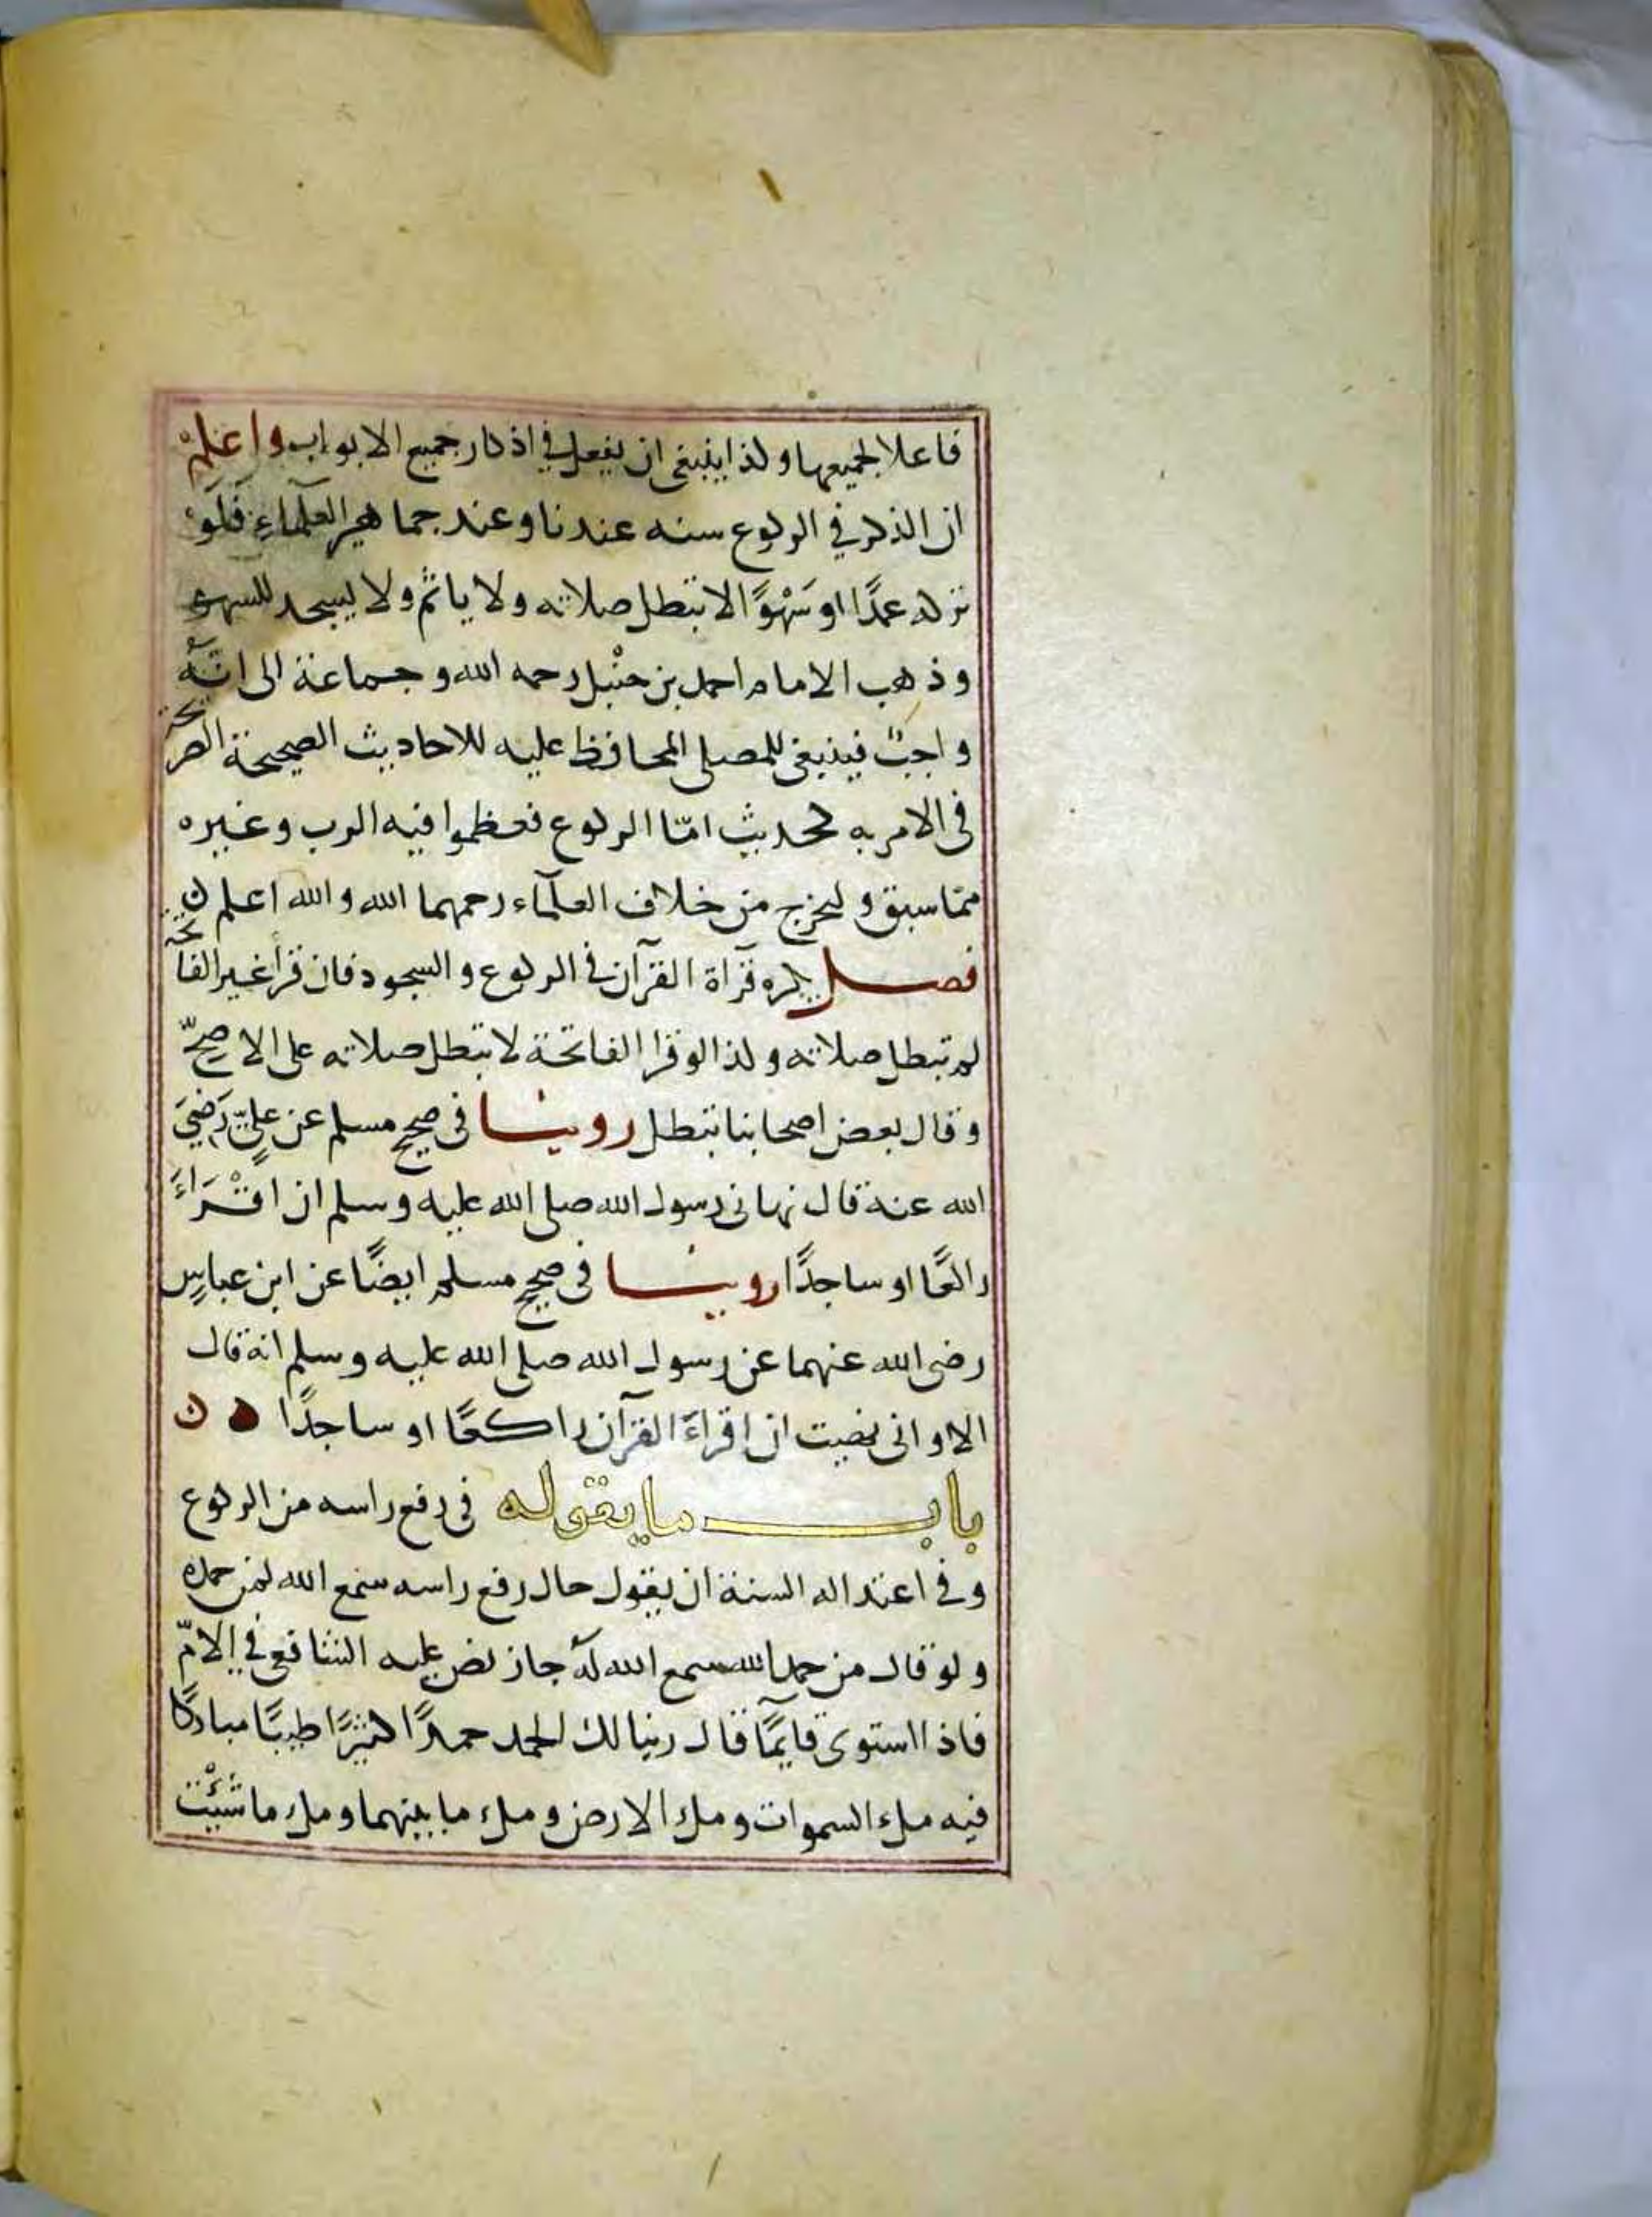 فاعلا لجميعها وكذا ينبغي ان يفعل في اذكار جميع الابواب واعلم
ان الذكر في الركوع سنه عندنا وعند جماهير العلماء فلو
تركه عمدًا او سَهْوًا لا تبطل صلاته ولا ياثم ولا يسجد للسهو
وذهب الامام احمد بن حنْبل رحمه الله وجماعة الى انّهُ
واجبٌ فينبغي للمصلي المحافظ عليه للاحاديث الصحيحة الصريحة
في الامر به لحديث امّا الركوع فعظموا فيه الرب وغيره
ممّا سبق وليخرج من خلاف العلمآء رحمهما الله والله اعلم ن
فصل يكره قرآة القرآن في الركوع والسجود فان قرأ غير الفاتحة
لم تبطل صلاته وكذا لو قرا الفاتحة لا تبطل صلاته على الاصحّ
وقال بعض اصحابنا تبطل روينا في صحيح مسلم عن عليّ رَضِيَ
الله عنه قال نهاني رسول الله صلى الله عليه وسلم ان اقْرَاءَ
راكعًا او ساجدًا روينا في صحيح مسلم ايضًا عن ابن عباسٍ
رضي الله عنهما عن رسول الله صلى الله عليه وسلم انه قال
الا واني نهيت ان اقراءَ القرآن راكعًا او ساجدًا ه ن
باب ما يقوله في رفع راسه من الركوع
وفي اعتداله السنة ان يقول حال رفع راسه سمع الله لمن حمده
ولو قال من حمد الله سمع الله له جاز نص عليه الشافعي في الامّ
فاذا استوى قايمًا قال ربنا لك الحمد حمدًا كثيرًا طيبًا مباركا
فيه ملء السموات وملء الارض وملء ما بينهما وملء ما شئْت